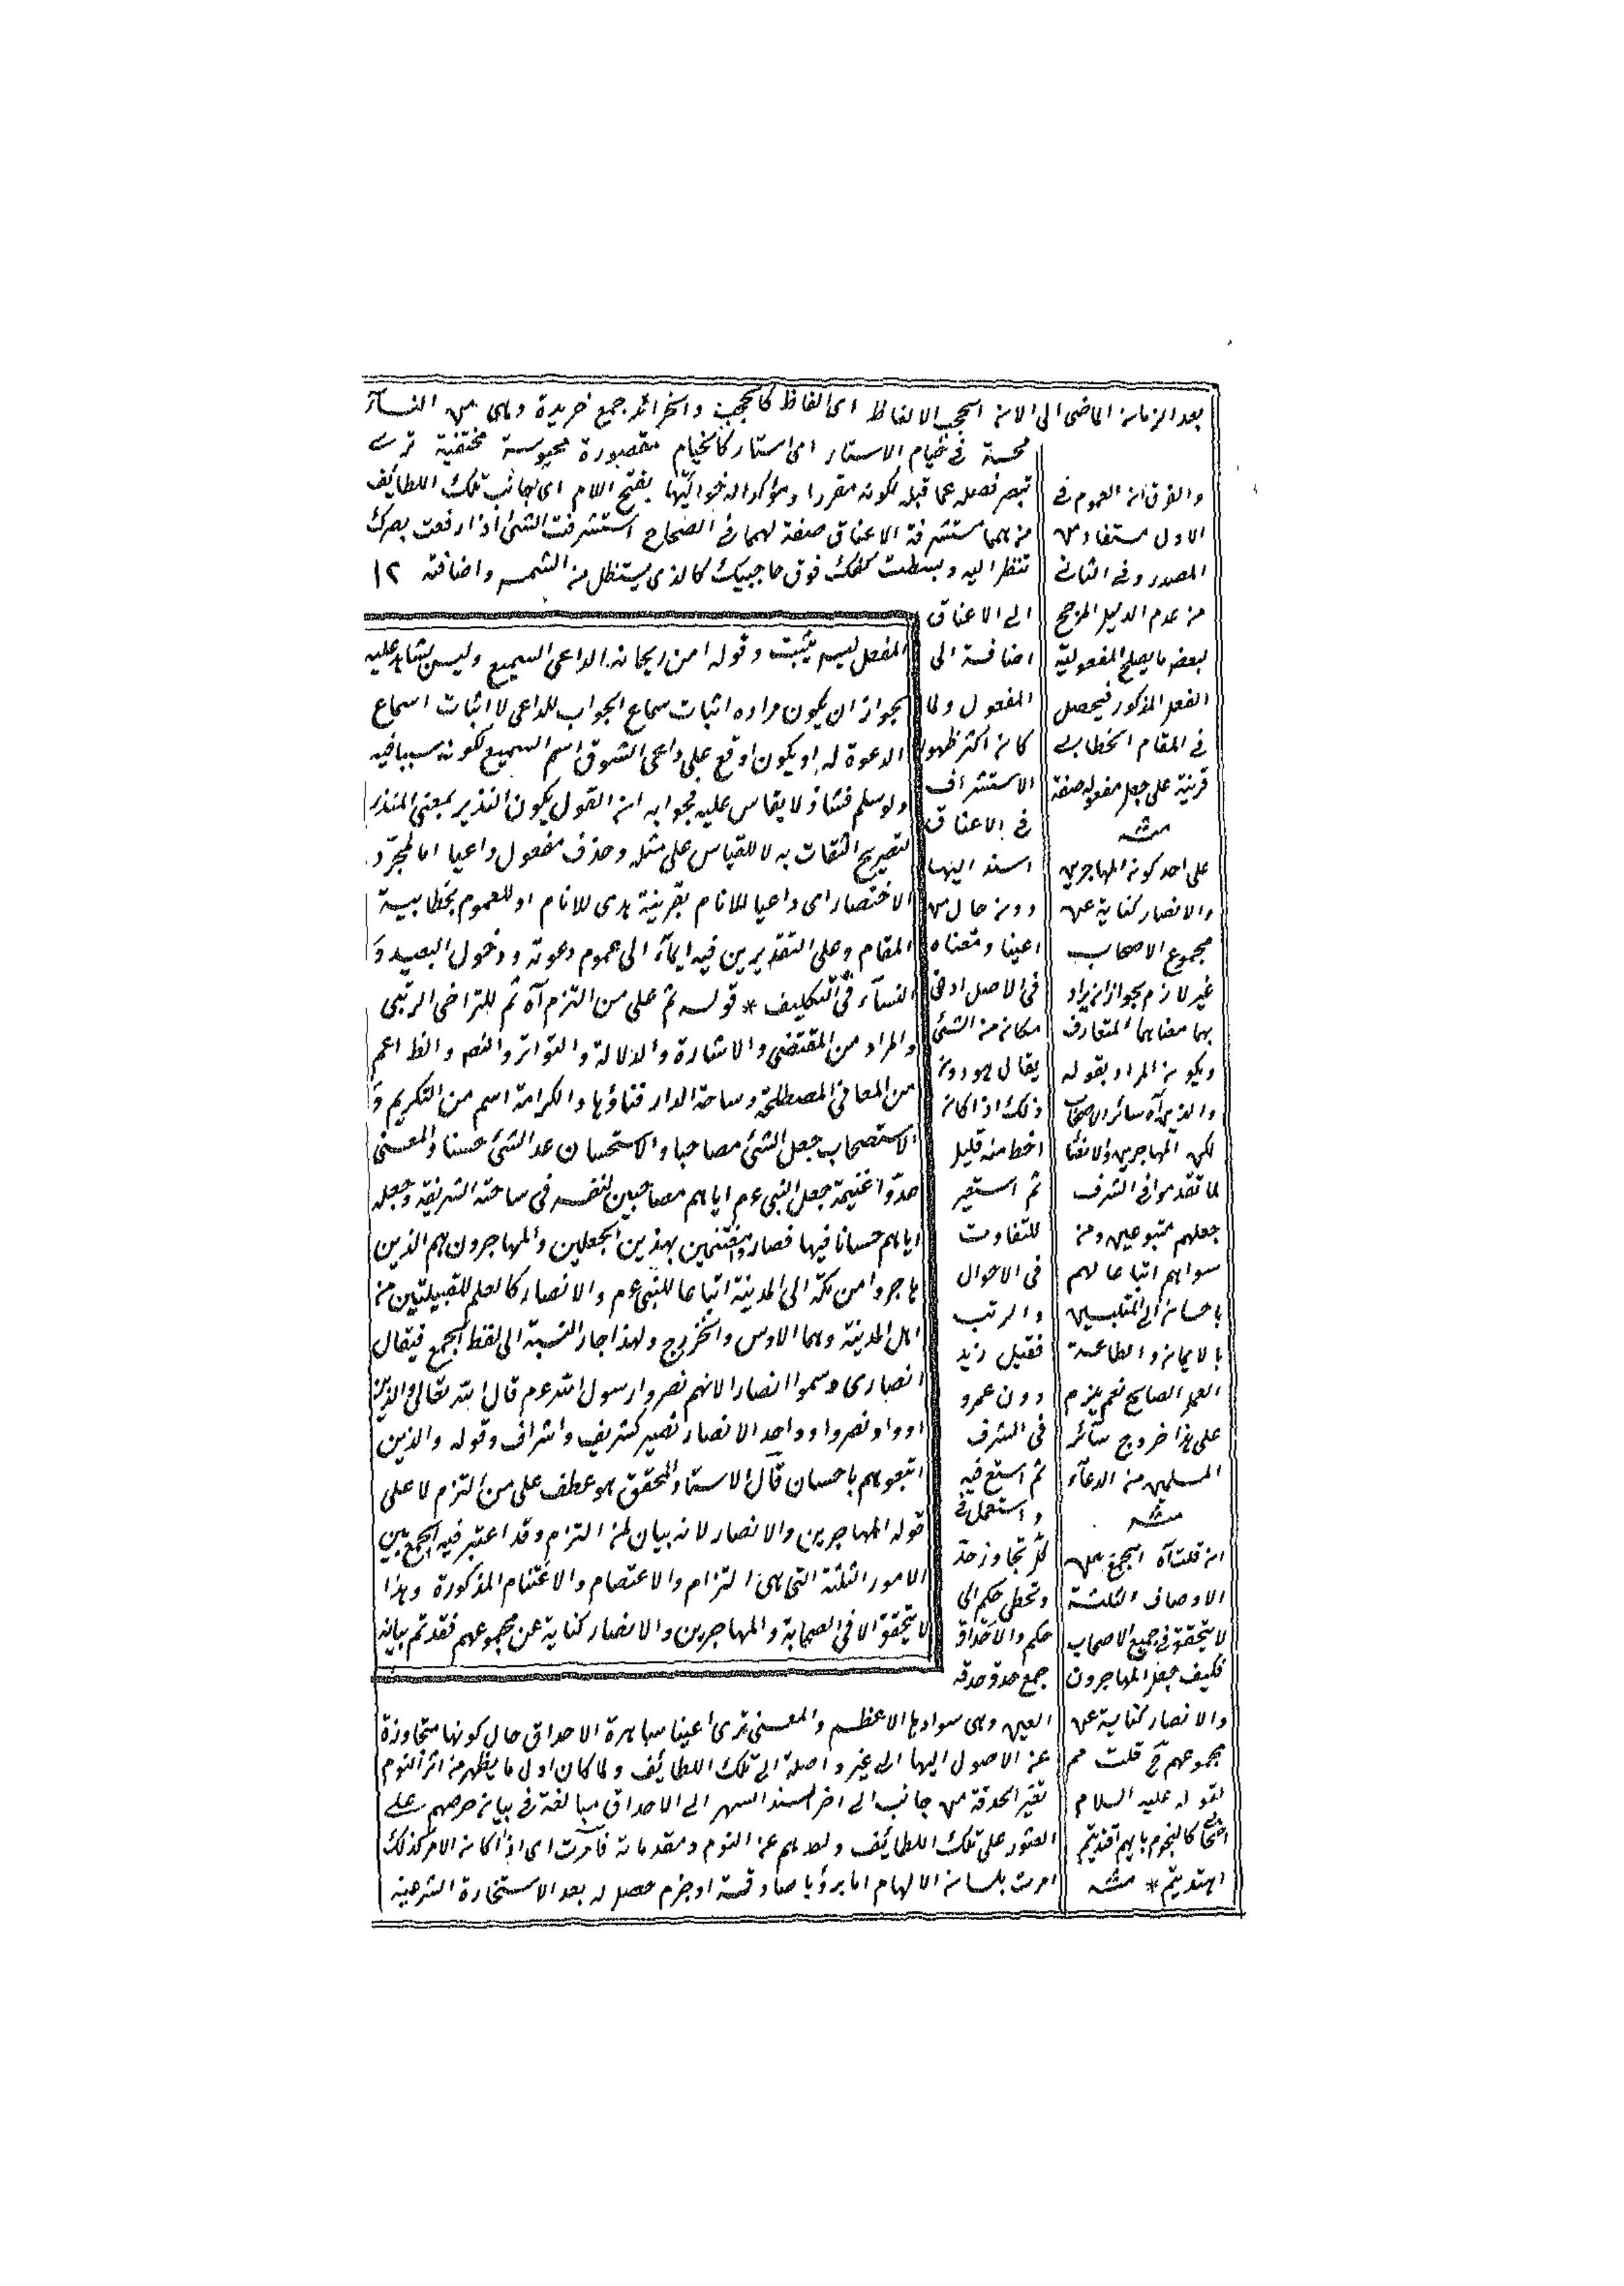 بعد الزمان الماضى الى الان الحجب الالفاظ اى الفاظ كالحجب والخرائد جمع خريدة وهى من النساء
محسة فى خيام الاستار اى استار كالخيام مقصورة محبوسة مختفية ترى
تبصر فصله عما قبله لكونه مقررا ومؤكدا له نحواليها بفتح اللام اى بجانب تلك اللطائف
منهما مستشرفة الاعناق صفة لهما فى الصحاح استشرفت الشئ اذا رفعت بصرك
تنظر اليه وبسطت كفك فوق حاجبيك كالذى يستظل من الشمس واضافته ١٢
الى الاعناق
اضافة الى
المفعول ولما
كان اكثر ظهور
الاستشراف
فى الاعناق
اسند اليها
دون حال من
اعينا ومعناه
فى الاصل ادنى
مكان من الشئ
يقال هو دون
ذلك اذا كان
احط منه قليل
ثم استعير
للتفاوت
فى الاحوال
والرتب
فقيل زيد
دون عمرو
فى الشرف
ثم اتسع فيه
واستعمل فى
كل تجاوز حد
وتخطى حكم الى
حكم والاحداق
جمع حدق وحدقة
العين وهى سوادها الاعظم والمعنى ترى اعينا ساهرة الاحداق حال كونها متجاوزة
عن الاصول اليها الى غير واصلة الى تلك اللطائف ولما كان اول ما يظهر من اثر النوم
تغير الحدقة من جانب الى اخر اسند السهر الى الاحداق مبالغة فى بيان حرصهم على
العثور على تلك اللطائف وبعدهم عن النوم ومقدماته فامرت اى اذا كان الامر كذلك
امرت بلسان الالهام اما برؤيا صادقة او جزم حصل له بعد الاستخارة الشرعية
المفعل ليس بثبت وقوله امن ريحانة الداعى السميع وليس بشاهد عليه
لجواز ان يكون مراده اثبات سماع الجواب للداعى لا اثبات اسماع
الدعوة له او يكون اوقع على داعى الشوق اسم السميع لكونه سببا فيه
ولو سلم فشاذ لا يقاس عليه فجوابه ان القول بكون النذير بمعنى المنذر
لتصريح الثقات به لا للقياس على مثله وحذف مفعول داعيا اما لمجرد
الاختصار اى داعيا للانام بقرينة هدى للانام او للعموم بخطابية
المقام وعلى التقديرين فيه ايماء الى عموم دعوته ودخول العبيد و
النساء فى التكليف * قوله ثم على من التزم آه ثم للتراخى الرتبى
والمراد من المقتضى والاشارة والدلالة والتواتر والنص والظ اعم
من المعانى المصطلحة وساحة الدار فناؤها والكرامة اسم من التكريم و
الاستصحاب جعل الشئ مصاحبا والاستحسان عد الشئ حسنا والمعنى
عدوا غنيمة جعل النبى عم اياهم مصاحبين لنفسه فى ساحته الشريفة وجعله
اياهم حسانا فيها فصاروا مغتنمين بهذين الجعلين والمهاجرون هم الذين
هاجروا من مكة الى المدينة اتباعا للنبى عم والانصار كالعلم للقبيلتين من
اهل المدينة وهما الاوس والخزرج ولهذا جاز النسبة الى لفظ الجمع فيقال
انصارى وسموا انصارا لانهم نصروا رسول الله عم قال الله تعالى والذين
اووا ونصروا وواحد الانصار نصير كشريف واشراف وقوله والذين
اتبعوهم باحسان قال الاستاد المحقق هو عطف على من التزم لا على
قوله المهاجرين والانصار لانه بيان لمن التزم وقد اعتبر فيه الجمع بين
الامور الثلثة التى هى التزام والاعتصام والاغتنام المذكورة وهذا
لا يتحقق الا فى الصحابة والمهاجرين والانصار كناية عن مجموعهم فقد تم بيانه
والفرق ان العموم فى
الاول مستفاد من
المصدر وفى الثانى
من عدم الدليل المرجح
لبعض ما يصلح المفعولية
الفعل المذكور فيحصل
فى المقام الخطابى
قرينة على جعل مفعوله صفة
منه
على احد كون المهاجرين
والانصار كناية عن
مجموع الاصحاب
غير لازم بجواز ان يراد
بهما معناهما المتعارف
ويكون المراد بقوله
والذين آه سائر الاصحاب
لكن المهاجرين والانصار
لما تقدموا فى الشرف
جعلهم متبوعين ومن
سواهم اتباعا لهم
باحسان اى المتلبسين
بالايمان والطاعة
العمل الصالح نعم يلزم
على هذا خروج سائر
المسلمين من الدعاء
منه
ان قلت آه الجمع بين
الاوصاف الثلثة
لا يتحقق فى جميع الاصحاب
فكيف جعل المهاجرون
والانصار كناية عن
مجموعهم قلت مم
لقوله عليه السلام
اصحابى كالنجوم بايهم اقتديتم
اهتديتم * منه